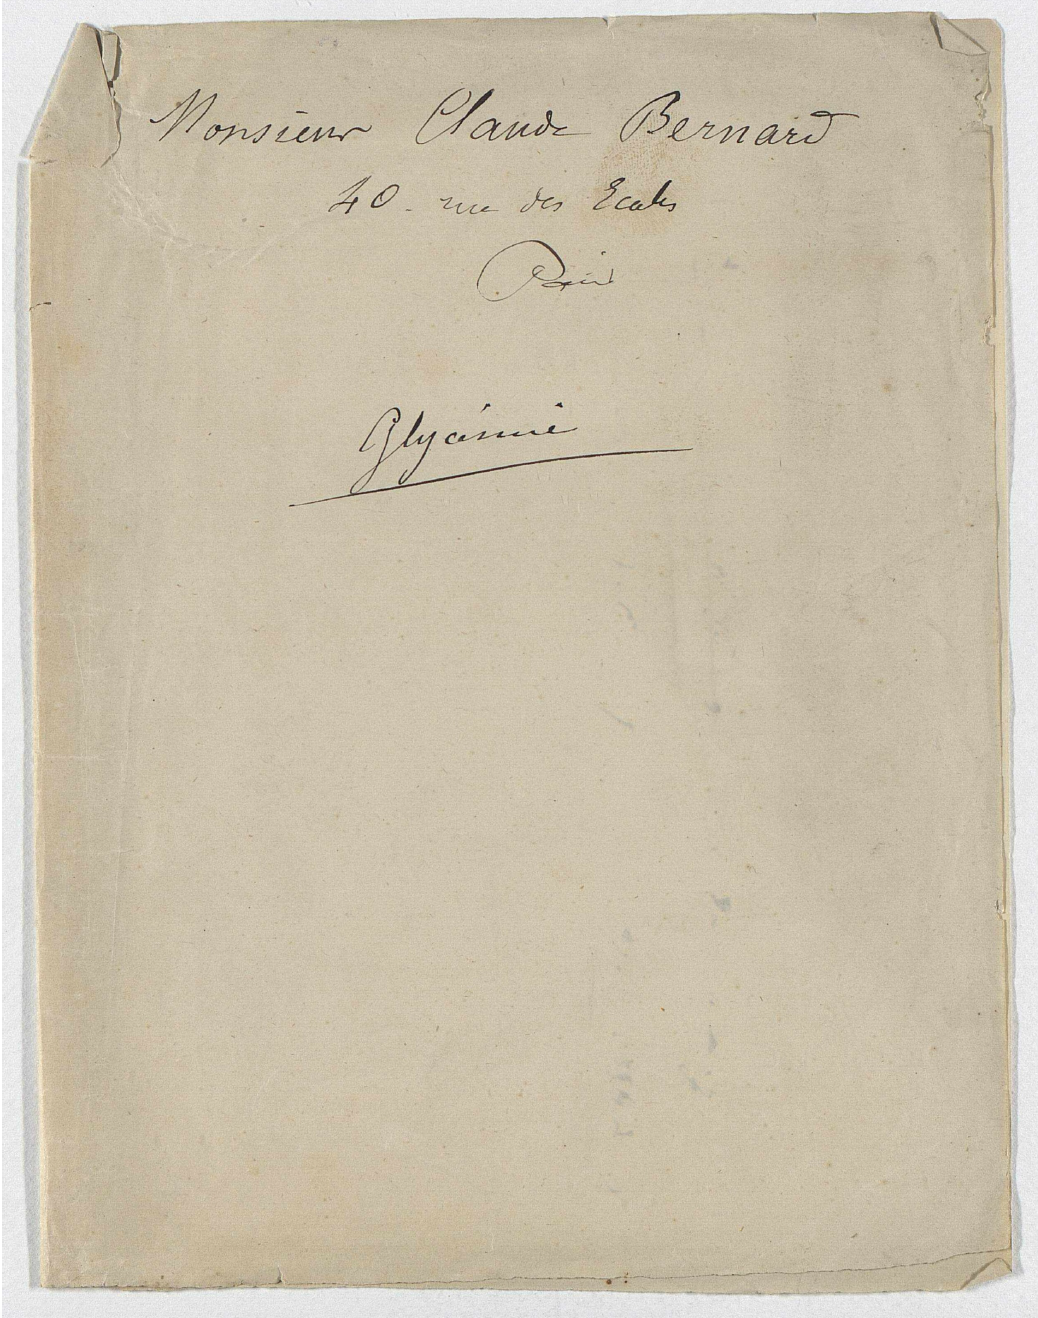 Monsieur Claude Bernard
40 - rue des Ecoles
Paris
Glycémie